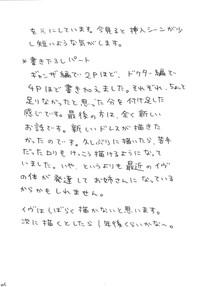 を元にしています。今見ると挿入シーンが少
し短いような気がします。
*書き下ろしパート
ギャンザ編で2Pほど、ドクター編で
4Pほど書き加えました。それぞれ、ちょっと
足りなかったと思った分を付け足した
感じです。最後の方は、全く新しい
お話です。新しいドレスが描きた
かったのです。久しぶりに描いたら、苦手
だった口もけっこう描けるようになって
いました。いや、というよりも最近のイヴ
の体が発達してお姉さんになっている
からかもしれません。
イヴはしばらく描かないと思います。
次に描くとしたら1年後くらいかな〜。